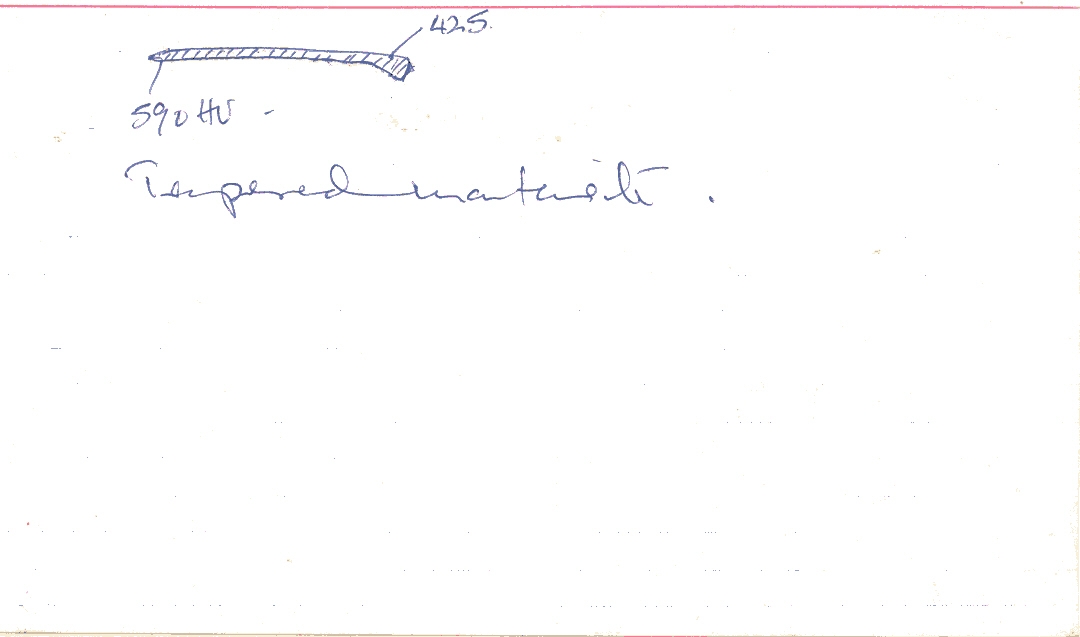 425.
590 HV -
Tempered martensite.